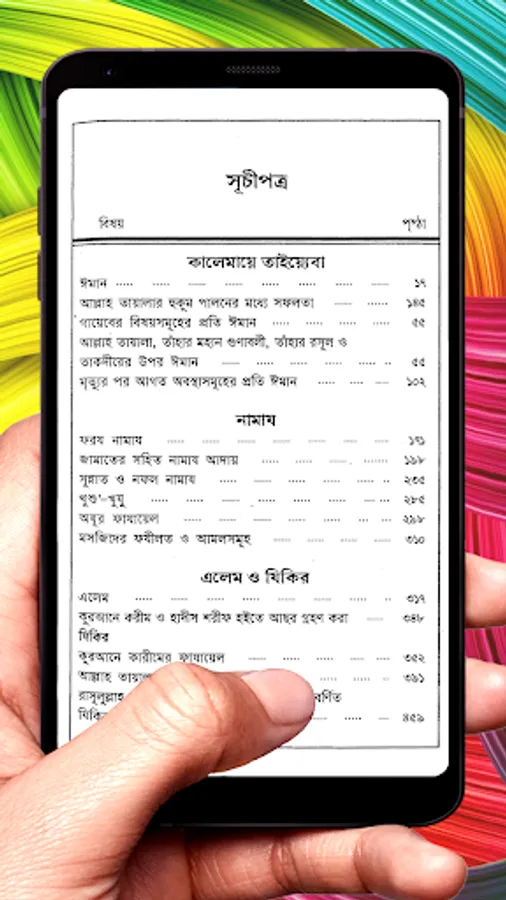 সূচীপত্র
বিষয় পৃষ্ঠা
কালেমায়ে তাইয়্যেবা
ঈমান ১৭
আল্লাহ তায়ালার হুকুম পালনের মধ্যে সফলতা ১৪৫
গায়েবের বিষয়সমূহের প্রতি ঈমান ৫৫
আল্লাহ তায়ালা, তাঁহার মহান গুণাবলী, তাঁহার রসূল ও
তাকদীরের উপর ঈমান ৫৫
মৃত্যুর পর আগত অবস্থাসমূহের প্রতি ঈমান ১০২
নামায
ফরয নামায ১৭১
জামাতের সহিত নামায আদায় ১৯৮
সুন্নাত ও নফল নামায ২৩৫
খুশু'-খুযু ২৮৫
অযুর ফাযায়েল ২৯৮
মসজিদের ফযীলত ও আমলসমূহ ৩১০
এলেম ও যিকির
এলেম ৩১৭
কুরআনে করীম ও হাদীস শরীফ হইতে আছর গ্রহণ করা ৩৪৮
যিকির
কুরআনে কারীমের ফাযায়েল ৩৫২
আল্লাহ তায়ালা ৩৯১
রাসূলুল্লাহ বর্ণিত
যিকি ৪৫৯